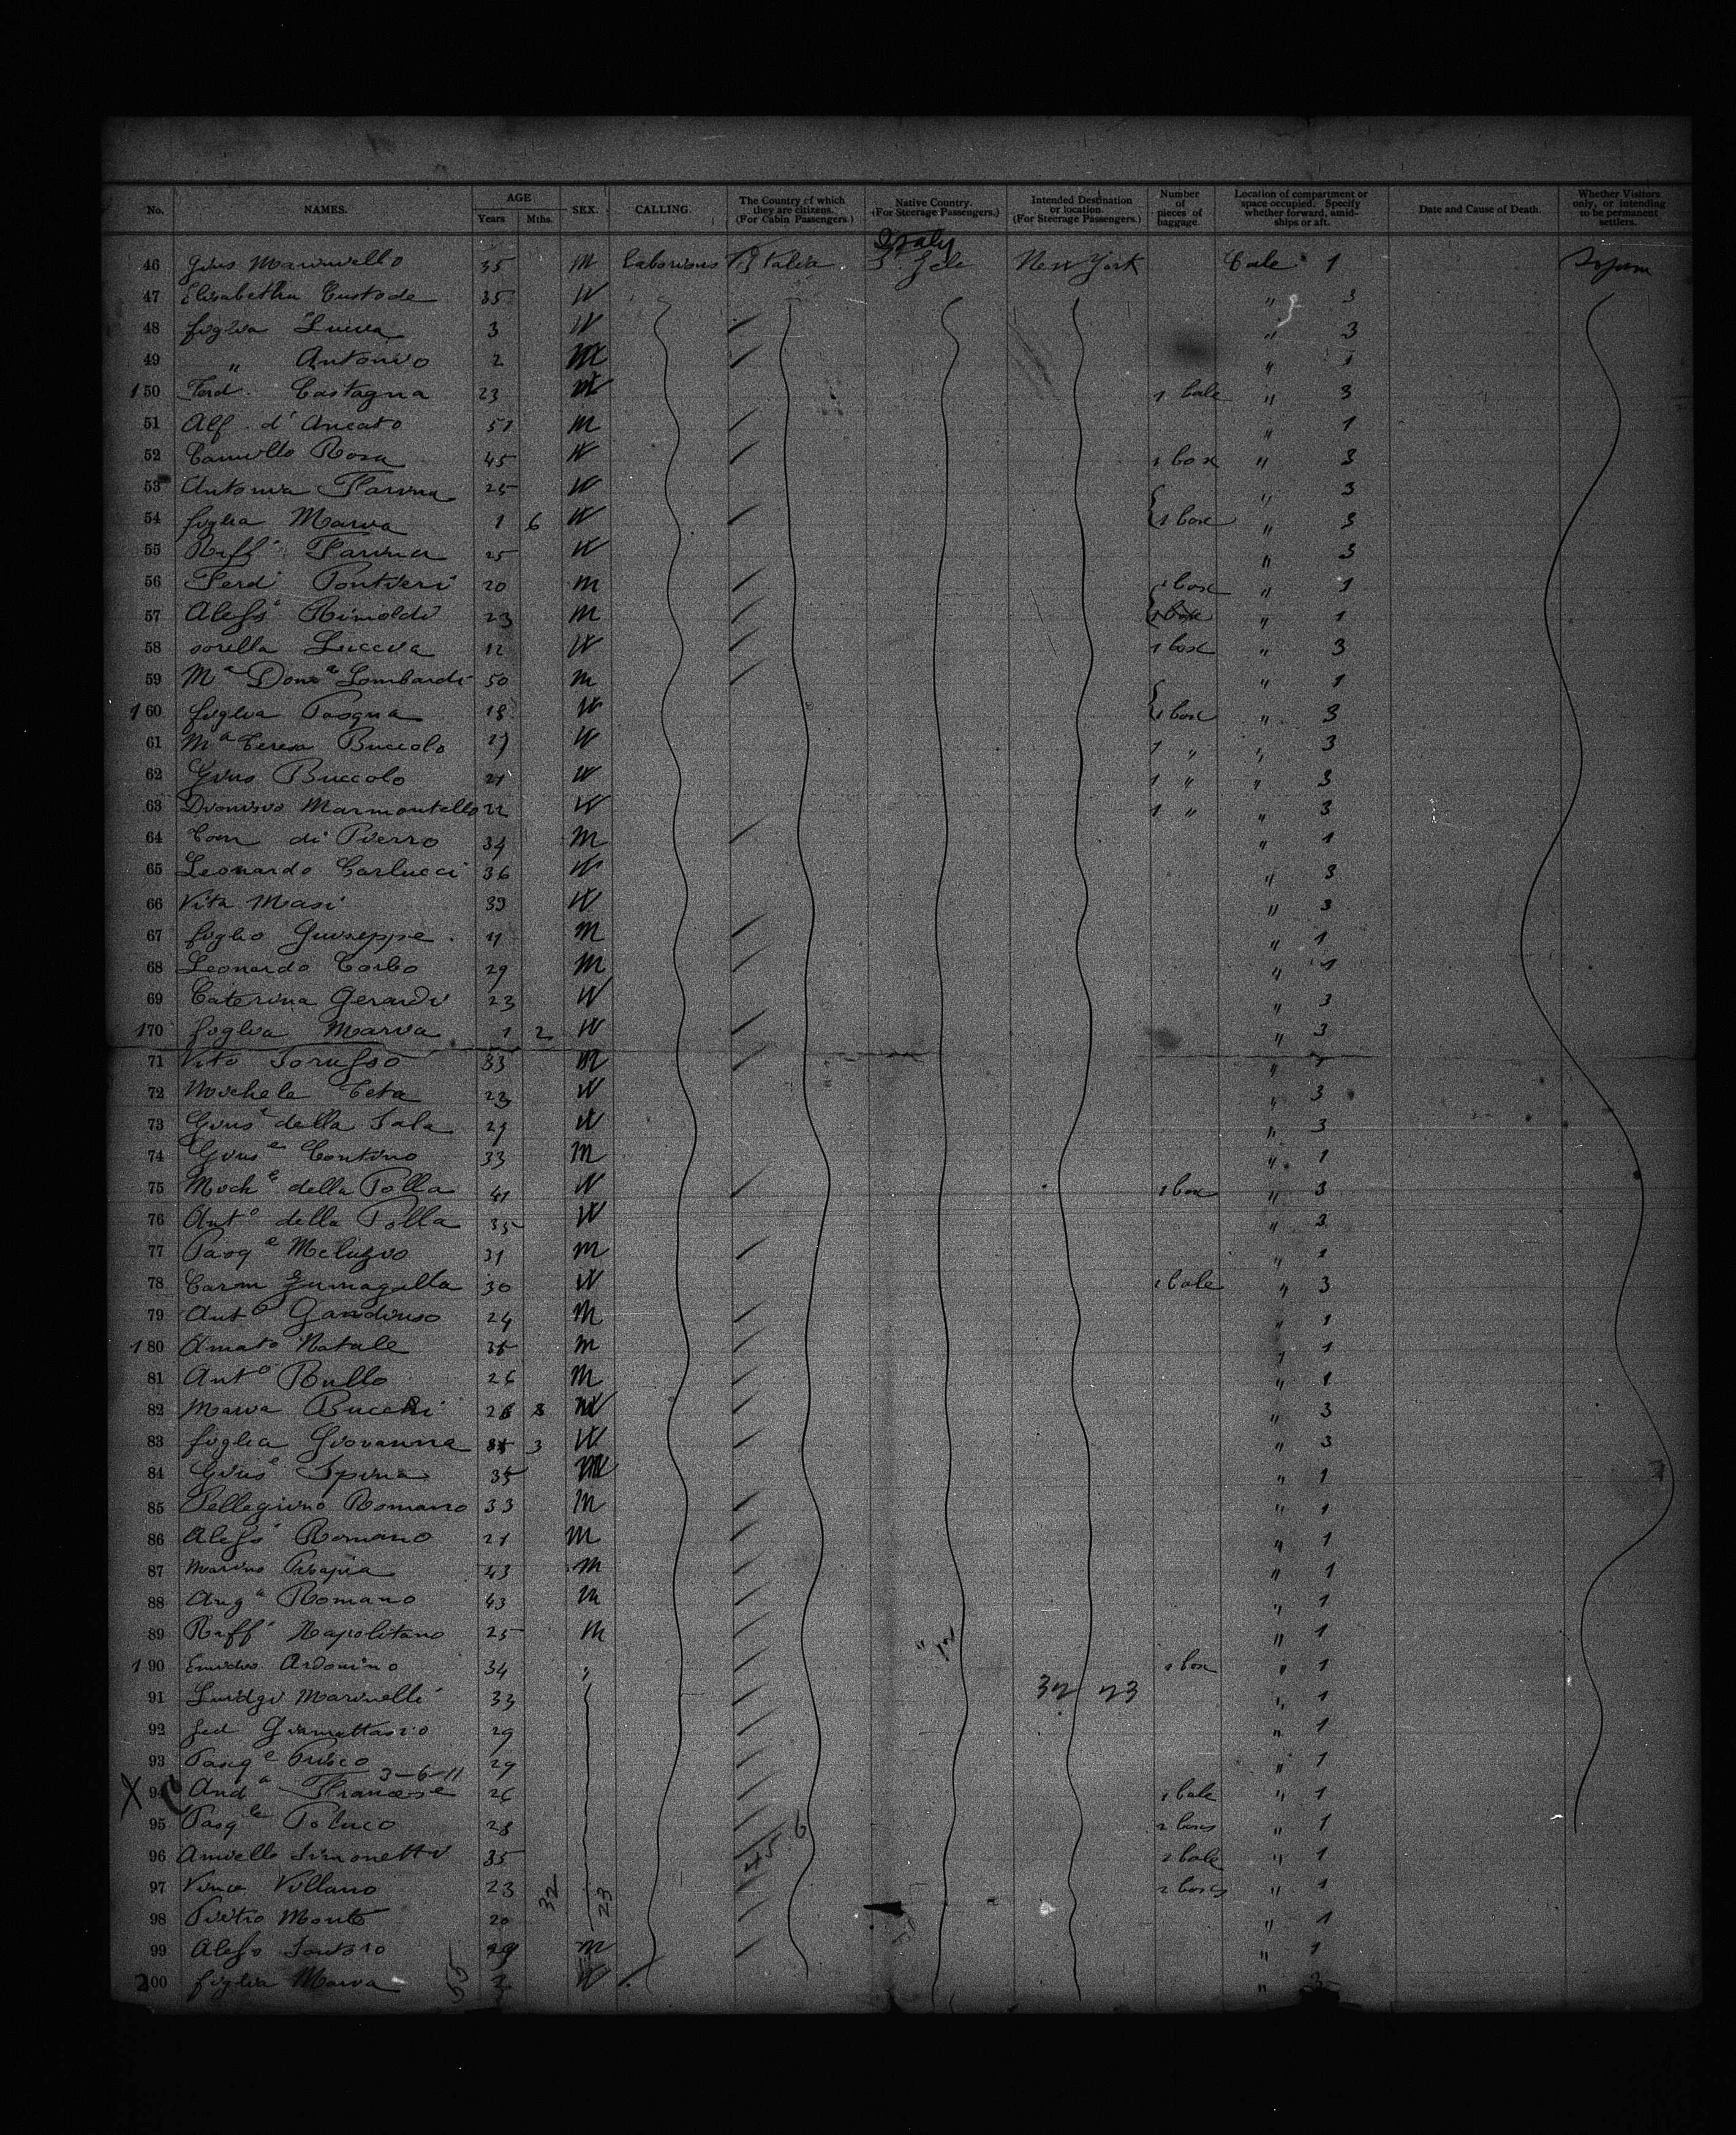 No. NAMES. AGE Years Mths. SEX. CALLING. The Country of which they are citizens. (For Cabin Passengers.) Native Country. (For Steerage Passengers.) Intended Destination or location. (For Steerage Passengers.) Number of pieces of baggage. Location of compartment or space occupied. Specify whether forward, amidships or aft. Date and Cause of Death. Whether Visitors only, or intending to be permanent settlers.
Italy
46 35 M Italia New York 1
47 Elisabetha Custode 35 W " 3
48 figlia 3 W " 3
49 " Antonio 2 M " 1
150 Ferd. Castagna 23 1 bale " 3
51 Alf. d' Aneato 51 M " 1
52 Camillo Rosa 45 W 1 box " 3
53 Antonia Farina 25 W " 3
54 figlia Maria 1 6 W 1 box " 3
55 Raff Farina 25 W " 3
56 Ferd Pontieri 20 M 1 box " 1
57 Aless Rinoldi 23 M 1 box " 1
58 sorella Luccia 12 W 1 box " 3
59 Mª Donª Lombardi 50 M " 1
160 figlia Pasqua 18 W 1 box " 3
61 Mª Teresa Buccolo 27 W 1 " " 3
62 Gius Buccolo 21 W 1 " " 3
63 Dionisio Marmontello 22 W 1 " " 3
64 di Pierro 34 M " 1
65 Leonardo Carlucci 36 W " 3
66 Vita Masi 39 W " 3
67 figlio Giuseppe 11 M " 1
68 Leonardo Corbo 29 M " 1
69 Caterina Gerardi 23 W " 3
170 figlia Maria 1 2 W " 3
71 Vito 33 M " 1
72 Michele Ceta 23 W " 3
73 Gius della Sala 29 W " 3
74 Giusᵉ Contino 33 M " 1
75 Michᵉ della Polla 41 W 1 box " 3
76 Antº della Polla 35 W " 3
77 Pasqᵉ Meluzio 31 M " 1
78 Carm 30 W 1 bale " 3
79 Antº Gandiuso 24 M " 1
180 Amato Natale 35 M " 1
81 Antº Rullo 26 M " 1
82 Maria W " 3
83 figlia Giovanna 3 W " 3
84 Giusᵉ Spina 35 M " 1
85 Pellegrino Romano 33 M " 1
86 Aless Romano 21 M " 1
87 Marino 43 M " 1
88 Angª Romano 43 M " 1
89 Raff Napolitano 25 M " 1
190 Emidio Ardonino 34 " 1 box " 1
91 Luidgi Marinelli 33 32 23 " 1
92 29 " 1
93 Pasqᵉ Prisco 29 " 1
3-6-11
X 94 Andª Francese 26 1 bale " 1
95 Pasqˡᵉ 28 2 boxes " 1
96 Aniello Simonetti 35 2 bale " 1
97 Vince Villano 23 2 boxes " 1
98 Pietro Monte 20 " 1
32 23 45
99 Aless 29 M " 1
200 figlia Maria 2 W " 3
55